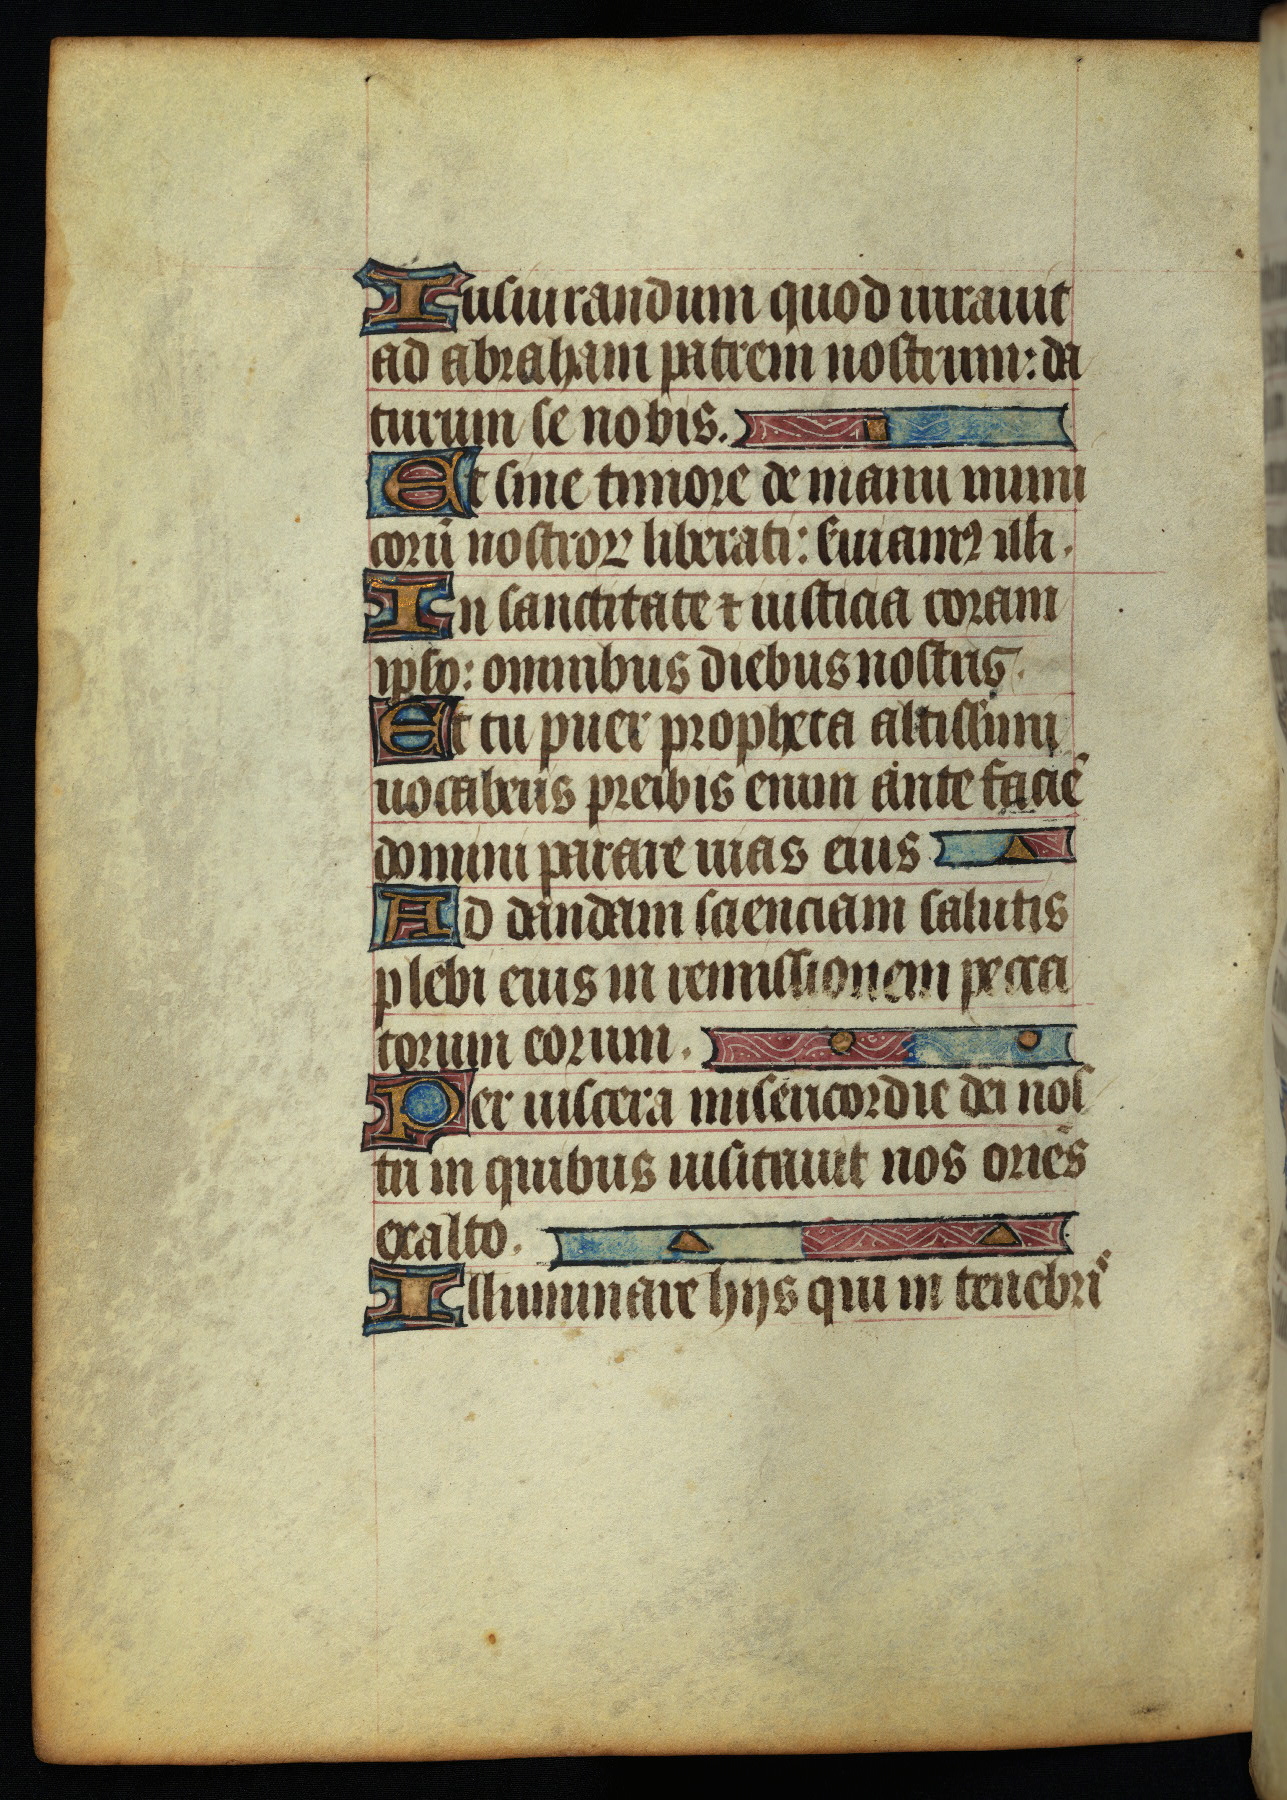 Iusiurandum quod iurauit
ad abraham patrem nostrum: da
turum se nobis.
Et sine timore de manu inimi
corū nostroꝝ liberati: seruiamꝰ illi.
In sanctitate ⁊ iusticia coram
ipso: omnibus diebus nostris.
Et tu puer propheta altissimi
uocaberis preibis enim ante faciē
domini parare uias eius
Ad dandam scienciam salutis
plebi eius in remissionem pecca
torum eorum.
Per uiscera misericordie dei nos
tri in quibus uisitauit nos oriēs
exalto.
Illuminare hijs qui in tenebris